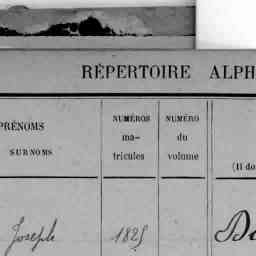 RÉPERTOIRE ALPH
PRÉNOMS
SURNOMS
NUMÉROS
ma-
tricules
NUMÉRO
du
volume
(Il do
Joseph 1825